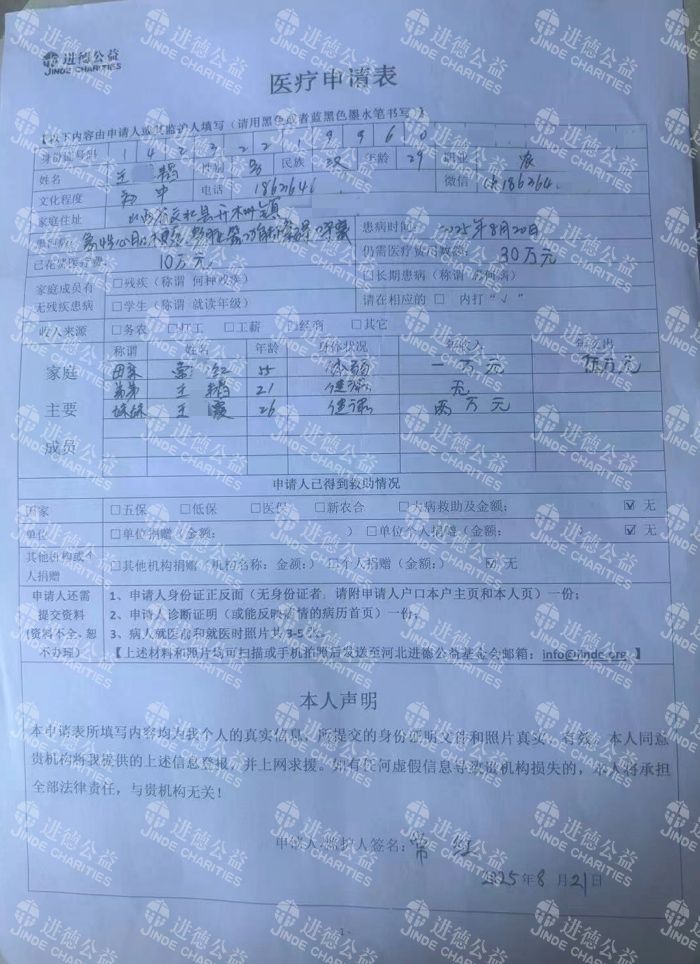 进德公益
JINDE CHARITIES
医疗申请表
【以下内容由申请人或其监护人填写（请用黑色或者蓝黑色墨水笔书写）】
身份证号码 1 4 2 3 2 2 1 9 9 6 0
姓名 王 性别 男 民族 汉 年龄 29 职业 农
文化程度 初中 电话 1862646 微信
家庭住址 山西省 县 镇
患病时间： 2025年8月20日
已花费医疗费： 10万元 仍需医疗费用数额： 30万元
家庭成员有无残疾患病 □残疾（称谓 何种残疾） □长期患病（称谓 患何病）
□学生（称谓 就读年级） 请在相应的 □ 内打“√”
□收入来源 □务农 □打工 □工薪 □经商 □其它
家庭主要成员 称谓 姓名 年龄 身体状况 年收入 年支出
母亲 常红 55 体弱 一万元 万元
弟弟 王 21 健康 无
王霞 26 健康 两万元
申请人已得到救助情况
国家 □五保 □低保 □医保 □新农合 □大病救助及金额： ☑ 无
单位 □单位捐赠（金额： ） □单位个人捐赠（金额： ） ☑ 无
其他机构或个人捐赠 □其他机构捐赠（机构名称：金额：） □个人捐赠（金额：） ☑ 无
申请人还需提交资料（资料不全，恕不办理）
1、申请人身份证正反面（无身份证者，请附申请人户口本户主页和本人页）一份；
2、申请人诊断证明（或能反映病情的病历首页）一份；
3、病人就医前和就医时照片共3-5张。
【上述材料和照片均可扫描或手机拍照后发送至河北进德公益基金会邮箱：info@jinde.org 】
本人声明
本申请表所填写内容均为我个人的真实信息，所提交的身份证明文件和照片真实、有效。本人同意
贵机构将我提供的上述信息登报，并上网求援。如有任何虚假信息导致贵机构损失的，本人将承担
全部法律责任，与贵机构无关！
申请人/监护人签名：常红
2025年8月21日
1